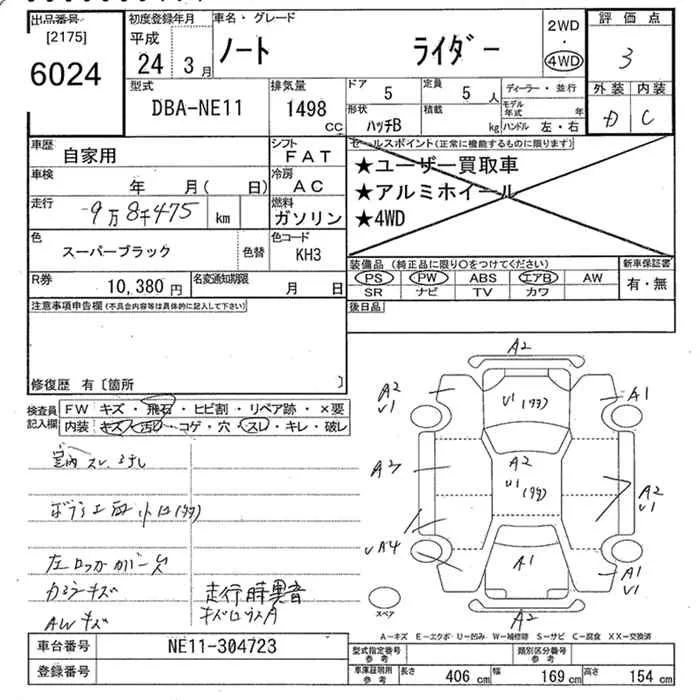 出品番号
[2175]
6024
初度登録年月
平成
24 3月
車名・グレード
ノート ライダー
2WD
・
4WD
評価点
3
外装 内装
D C
型式
DBA-NE11
排気量
1498
CC
ドア
5
定員
5 人
形状
ハッチB
積載
kg
ディーラー・並行
モデル年式 年
ハンドル 左・右
車歴
自家用
シフト
FAT
車検
年 月( 日)
冷房
AC
走行
9万8千475 km
燃料
ガソリン
色
スーパーブラック
色替
色コード
KH3
R券
10,380 円
名変通知期限
月 日
セールスポイント(正常に機能するものに限ります)
★ユーザー買取車
★アルミホイール
★4WD
装備品(純正品に限り○をつけてください)
PS PW ABS エアB AW
SR ナビ TV カワ
新車保証書
有・無
後日品
注意事項申告欄(不具合内容等は具体的に記入して下さい)
修復歴 有〔箇所 〕
検査員記入欄
FW キズ・飛石・ヒビ割・リペア跡・×要
内装 キズ・汚れ・コゲ・穴・スレ・キレ・破レ
室内スレ
カバーキズ
AWキズ
走行時異音
A2
A2
U1
U1
A1
A2
A2
U1
A2
U1
A4
A1
A1
U1
A2
スペア
A-キズ E-エクボ U-凹み W-補修跡 S-サビ C-腐食 XX-交換済
車台番号
NE11-304723
登録番号
型式指定番号
参考
類別区分番号
参考
車庫証明用
参考
長さ 406 cm 幅 169 cm 高さ 154 cm